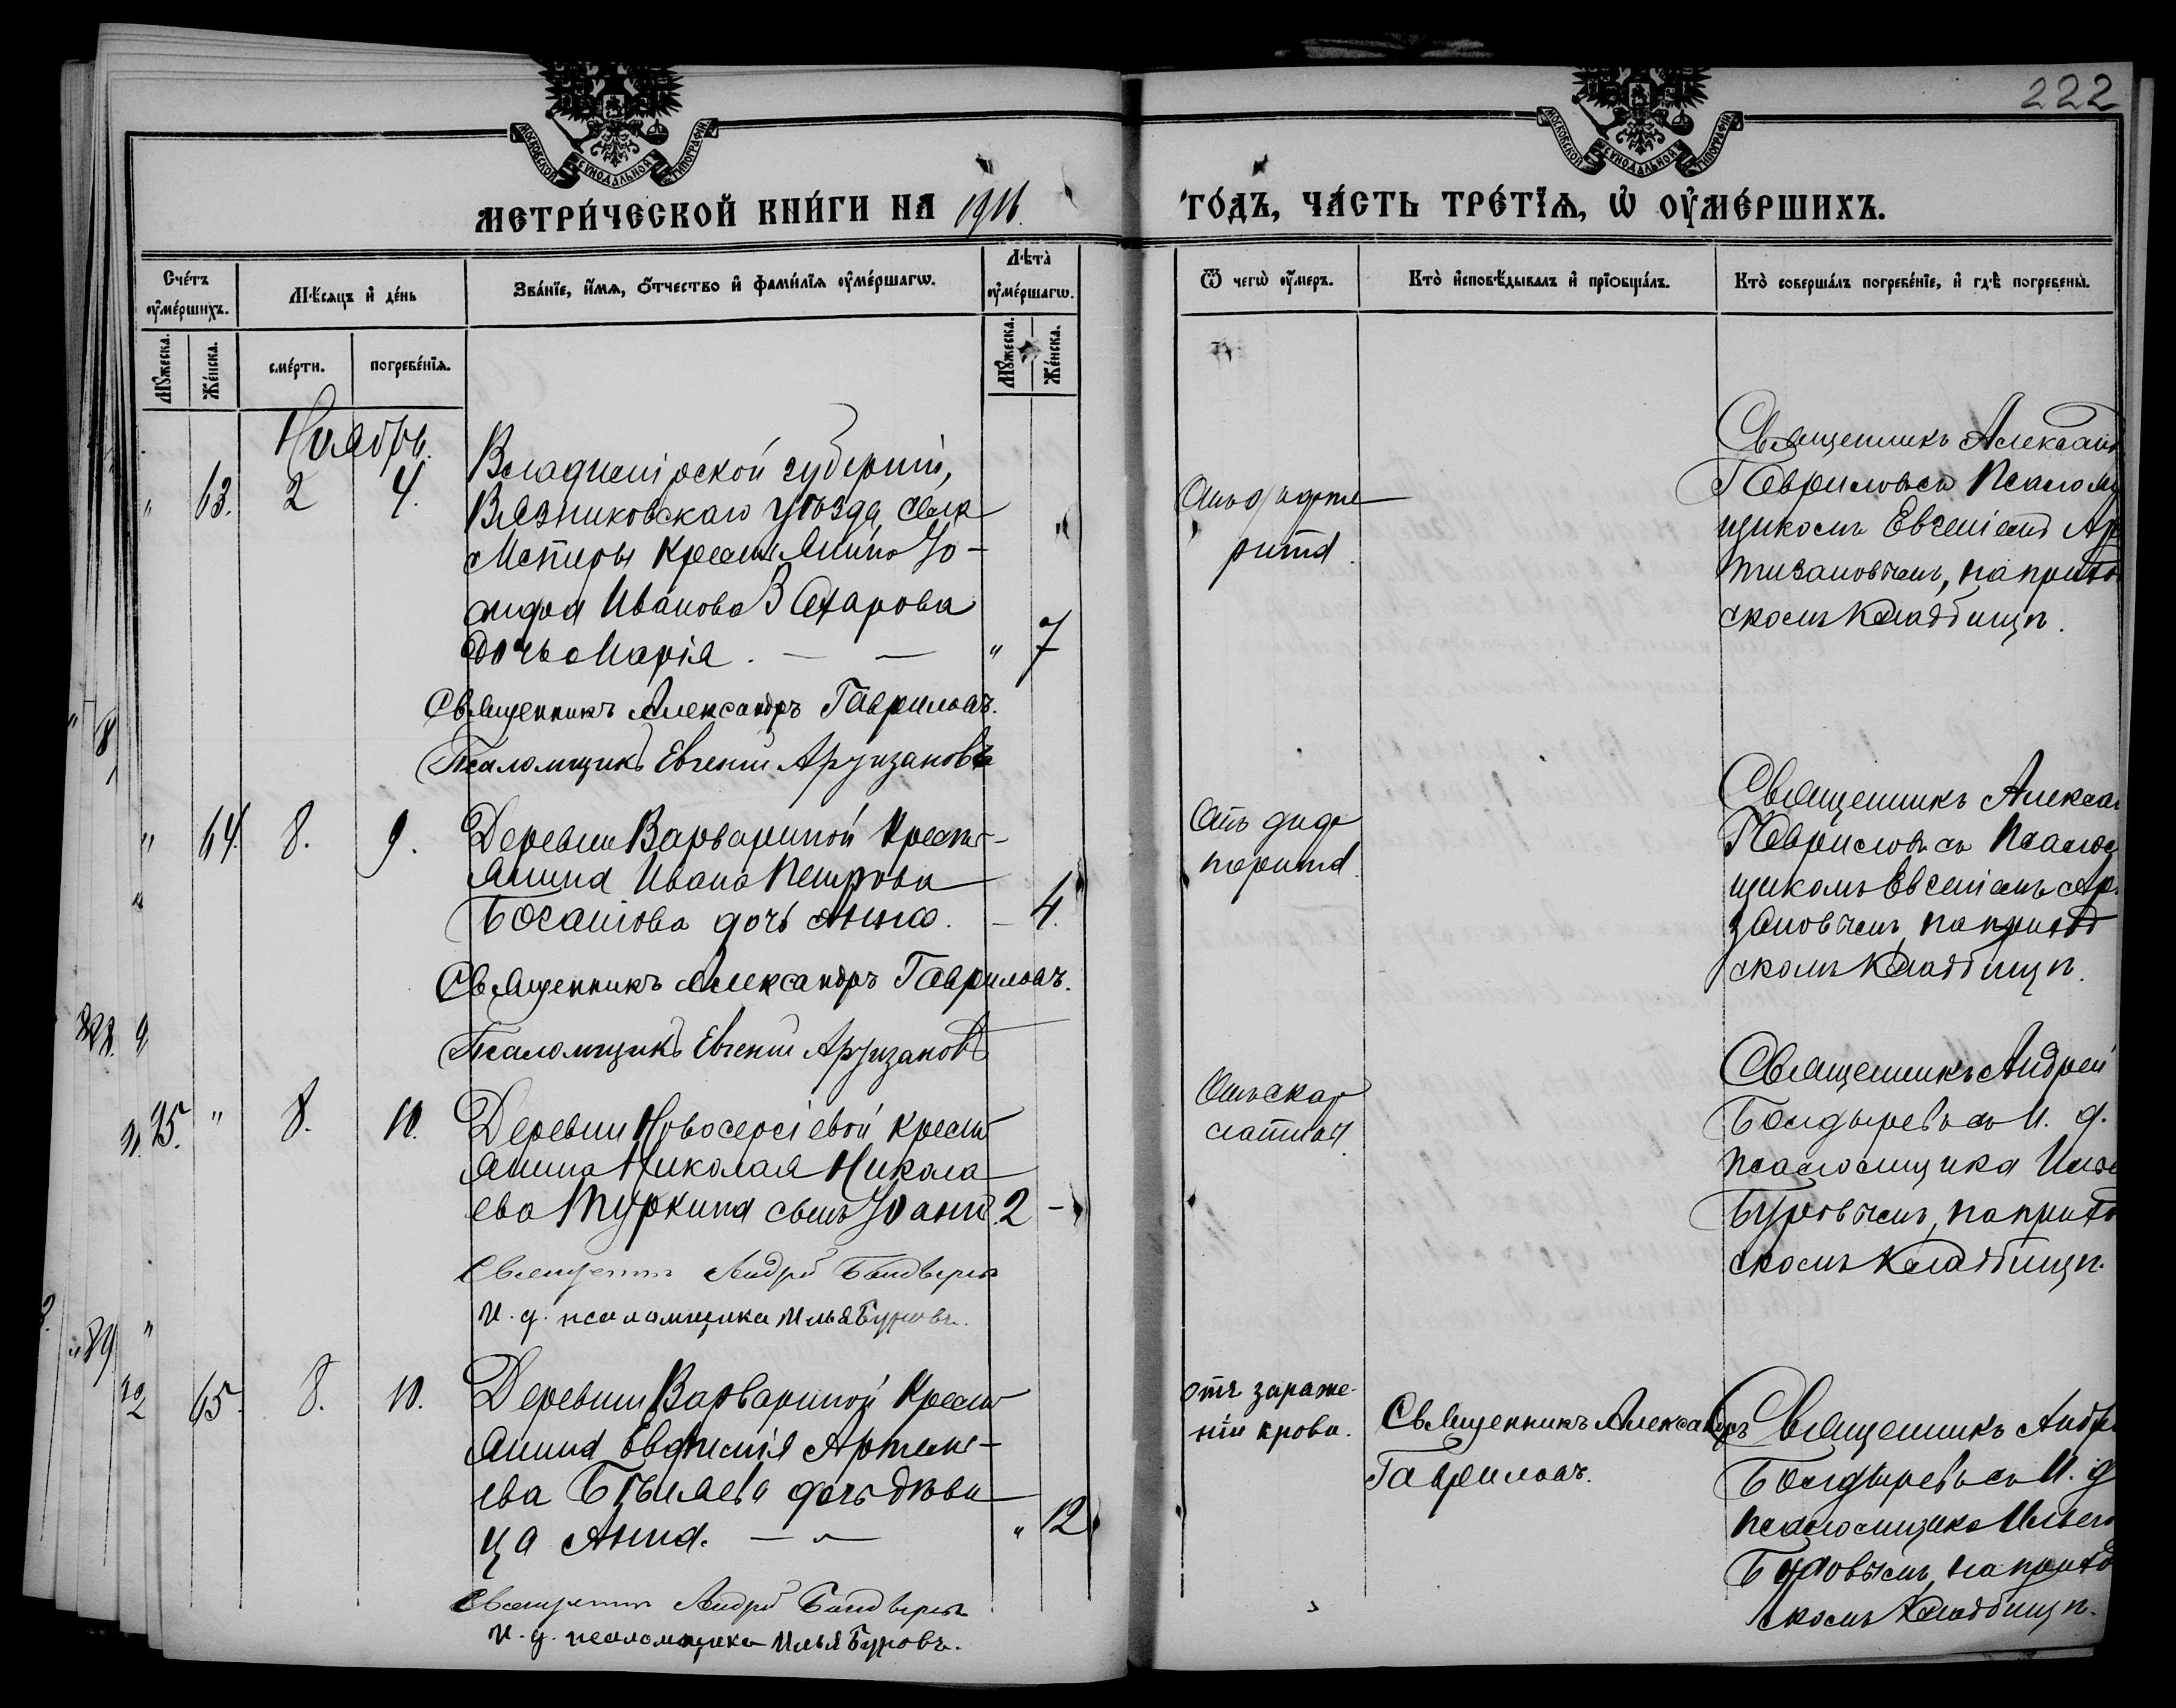 222
МОСКОВСКОЙ СѴНОДАЛЬНОЙ ТИПОГРАФІИ
МОСКОВСКОЙ СѴНОДАЛЬНОЙ ТИПОГРАФІИ
МЕТРИ́ЧЕСКОЙ КНИ́ГИ НА 1916.
ГО́ДЪ, ЧА́СТЬ ТРЕ́ТІѦ, Ѡ҆ ОУ҆МЕ́РШИХЪ.
Сче́тъ оу҆ме́ршихъ.
Мꙋ́жеска.
Же́нска.
Мѣ́сѧцъ и҆ де́нь
сме́рти.
погребе́нїѧ.
Зва́нїе, и҆́мѧ, ѻ҆́тчество и҆ фами́лїѧ оу҆ме́ршагѡ.
Лѣ́та̀ оу҆ме́ршагѡ.
Мꙋ́жеска.
Же́нска.
Ѿ чегѡ̀ оу҆́меръ.
Кто̀ и҆сповѣ́дывалъ и҆ прїобща́лъ.
Кто̀ соверша́лъ погребе́нїе, и҆ гдѣ̀ погребены̀.
Ноябрь.
" 63. 2 4.
Владимірской губерніи,
Вязниковскаго уѣзда, села
Мстеры крестьянина Іо-
анна Иванова Захарова
дочь Марія. — — " 7
Священникъ Александръ Гавриловъ.
Псаломщикъ Евгеній
Священникъ Александ
Гавриловъ съ Псалом
щикомъ Евгеніемъ
на приход
скомъ кладбищѣ.
" 64. 8. 9.
Деревни Варвариной кресть-
янина Ивана Петрова
дочь Анна. — 4.
Священникъ Александръ Гавриловъ.
Псаломщикъ Евгеній
Отъ дифтерита
Священникъ Алексан
Гавриловъ съ Псалом
щикомъ Евгеніемъ
на приход
скомъ кладбищѣ.
95. " 8. 10.
Деревни Новосергіевой кресть
янина Николая Никола
ева Туркина сынъ Іоаннъ. 2 —
Священникъ Андрей Болдыревъ
И. д. псаломщика Илья Буровъ.
Отъ скар
латины.
Священникъ Андрей
Болдыревъ съ И. д.
псаломщика Ильею
Буровымъ, на приход
скомъ кладбищѣ.
65. 8. 10.
Деревни Варвариной кресть
янина Евфимія Артемь-
ева Бѣляева дочь дѣви
ца Анна. — — " 12
Священникъ Андрей Болдыревъ
И. д. псаломщика Илья Буровъ.
отъ зараже-
нія крови.
Священникъ Александръ
Гавриловъ.
Священникъ Андре
Болдыревъ съ И. д
псаломщика Ильею
Буровымъ, на приход
скомъ кладбищѣ.